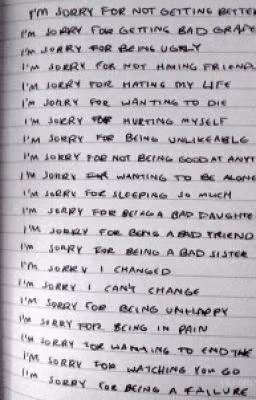 I'M SORRY FOR NOT GETTING BETTER
I'M SORRY FOR GETTING BAD GRADE
I'M SORRY FOR BEING UGLY
I'M SORRY FOR NOT HAVING FRIEND
I'M SORRY FOR HATING MY LIFE
I'M SORRY FOR WANTING TO DIE
I'M SORRY FOR HURTING MYSELF
I'M SORRY FOR BEING UNLIKEABLE
I'M SORRY FOR NOT BEING GOOD AT ANYT
I'M SORRY FOR WANTING TO BE ALONE
I'M SORRY FOR SLEEPING SO MUCH
I'M SORRY FOR BEING A BAD DAUGHTE
I'M SORRY FOR BEING A BAD FRIEND
I'M SORRY FOR BEING A BAD SISTER
I'M SORRY I CHANGED
I'M SORRY I CAN'T CHANGE
I'M SORRY FOR BEING UNHAPPY
I'M SORRY FOR BEING IN PAIN
I'M SORRY FOR WANTING TO END THE
I'M SORRY FOR WATCHING YOU GO
I'M SORRY FOR BEING A FAILURE